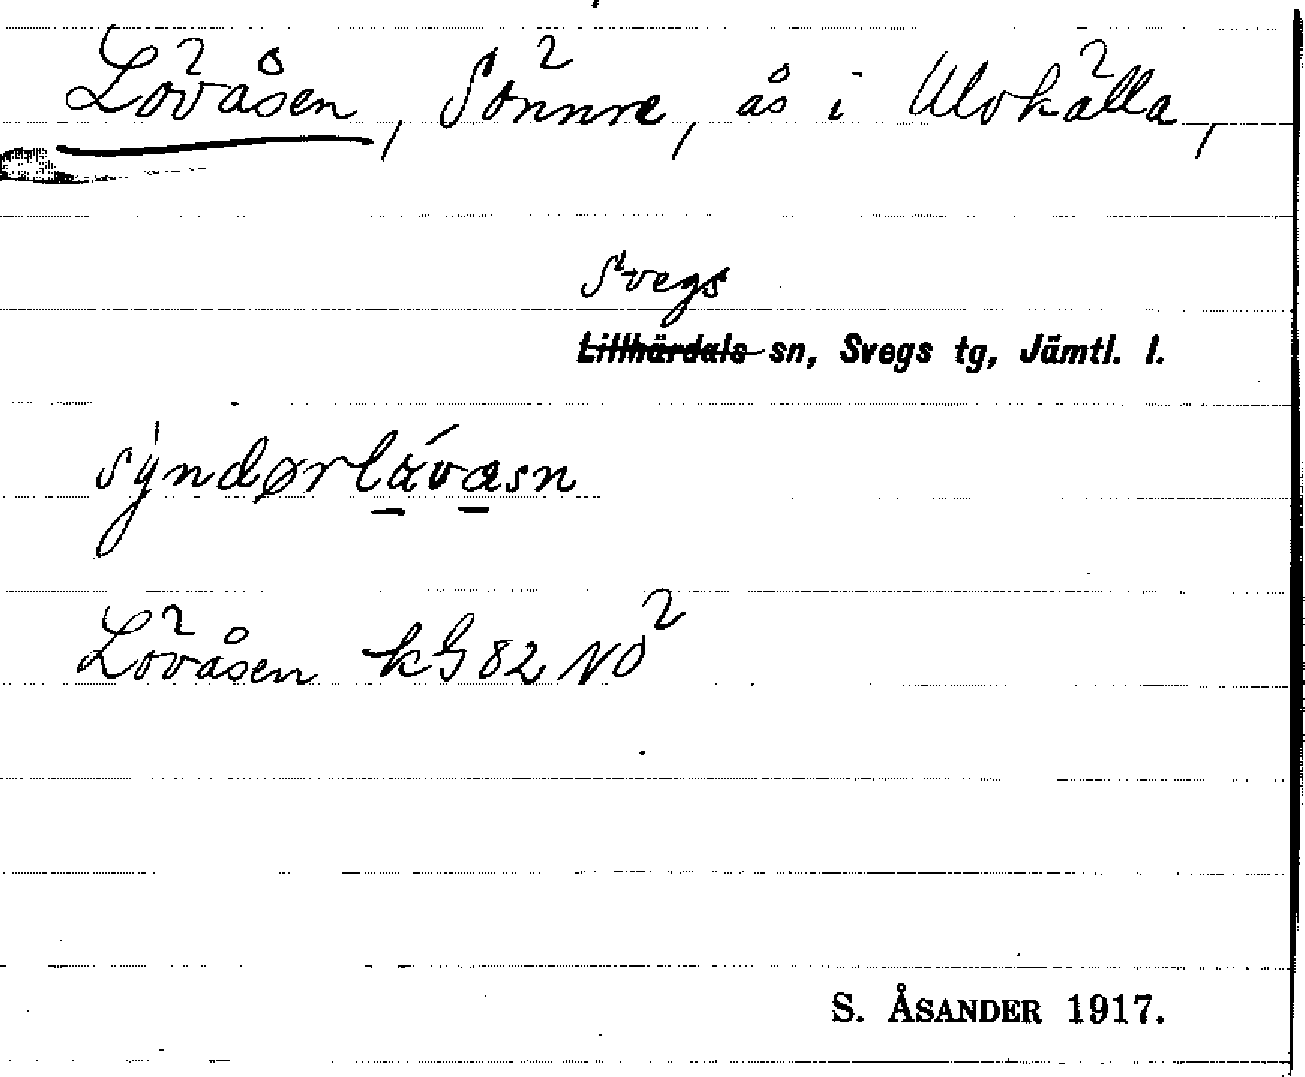 Lövåsen, Sönnre, ås i Ulvkälla,
Svegs
Lillhärdals sn, Svegs tg, Jämtl. l.
Lövåsen kG 82 NO²
S. ÅSANDER 1917.